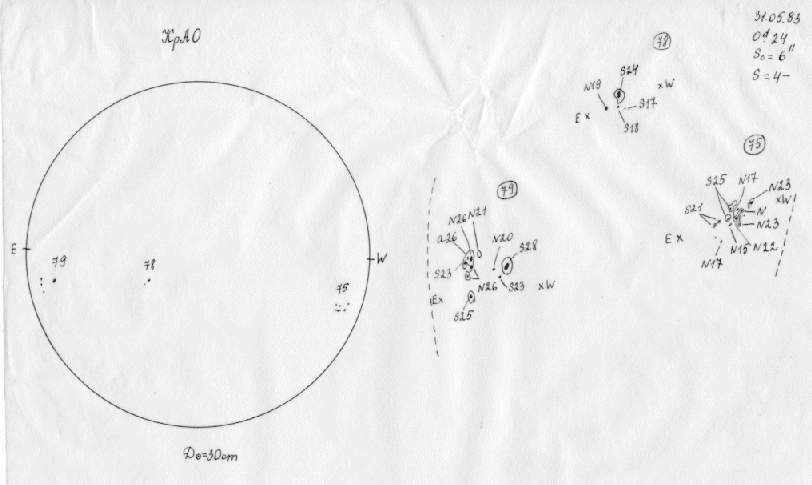 КрАО
31.05.83
E
W
79
78
75
D⊙=30cm
78
S24
N19
xW
S17
E x
S18
79
N26 N21
a26
N20
S28
S23
N26
S23
xW
Ex
S25
75
S25
N17
N23
xW
S21
N
N23
E x
N15
N22
N17